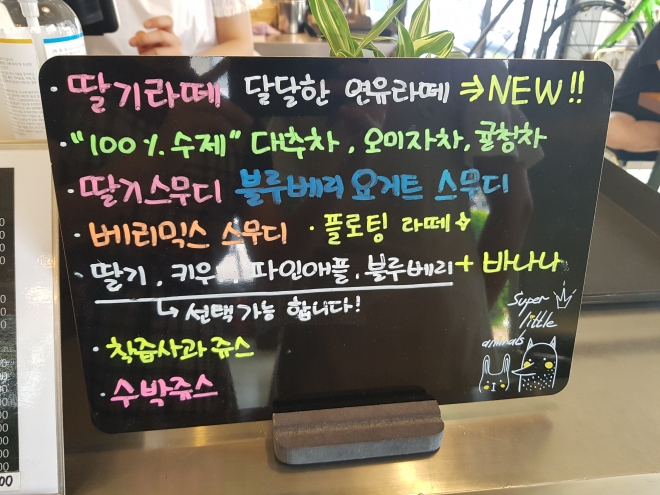 · 딸기라떼 달달한 연유라떼 ⇒ NEW!!
· "100% 수제" 대추차, 오미자차, 귤청차
· 딸기스무디 블루베리 요거트 스무디
· 베리믹스 스무디 · 플로팅 라떼
· 딸기, 키우 파인애플, 블루베리 + 바나나
↳ 선택가능 합니다!
· 착즙사과쥬스
· 수박쥬스
Super
little
animals